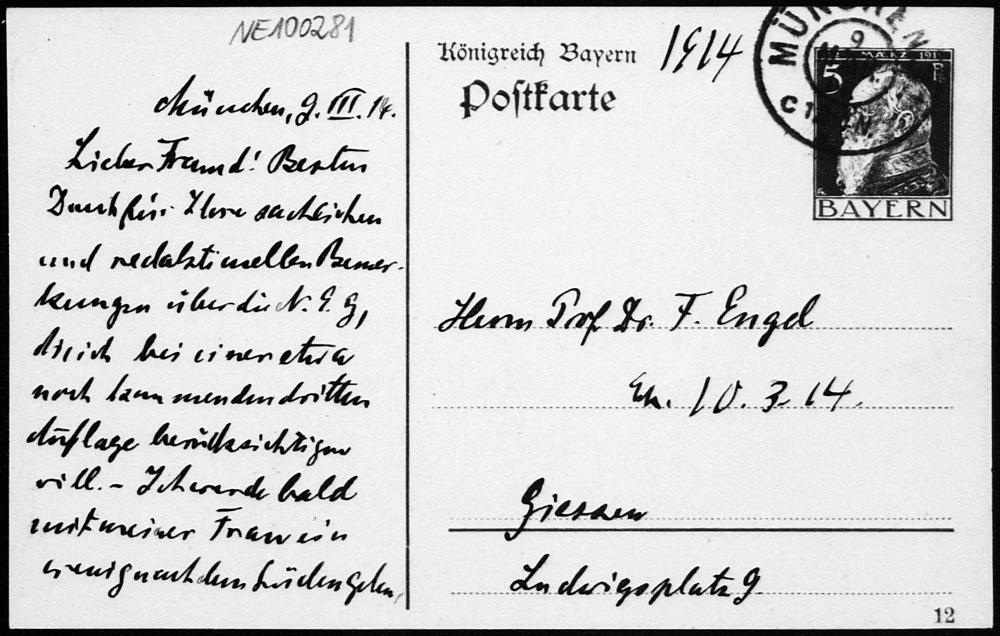 NE100281
München, 9. III. 14.
Lieber Freund! Besten
Dank für Ihre sachlichen
und redaktionellen Bemer-
kungen über die N. E. G,
die ich bei einer etwa
noch kommenden dritten
Auflage berücksichtigen
will. - Ich werde bald
mit meiner Frau ein
wenig nach dem Süden gehen,
Königreich Bayern
1914
Postkarte
MÜNCHEN
9
MÄRZ 191
5
BAYERN
Herrn Prof. Dr. F. Engel
Eh. 10. 3. 14.
Giessen
Ludwigsplatz 9.
12